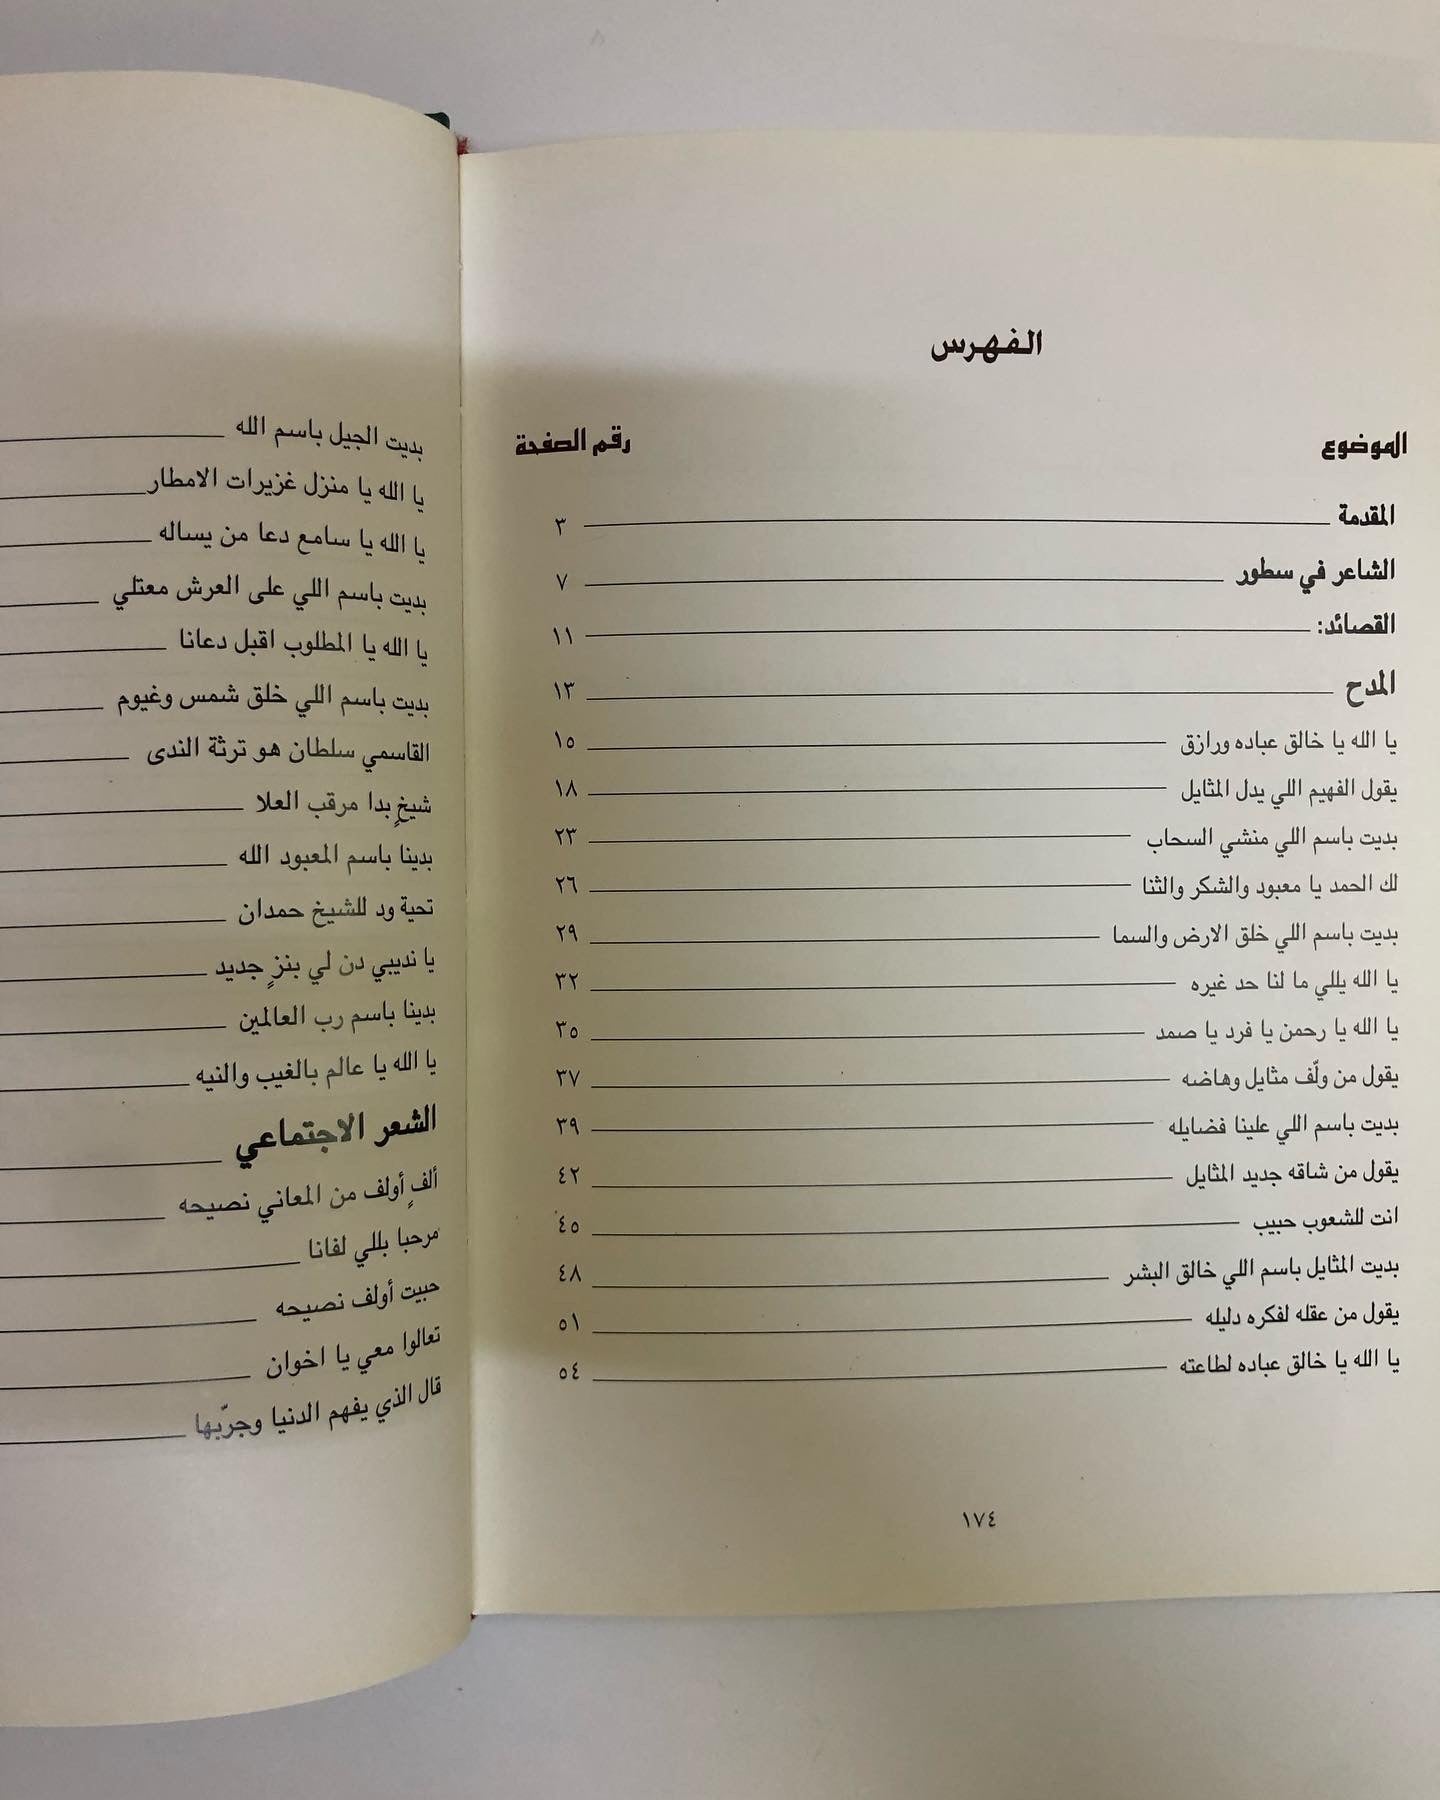 الفهرس
الموضوع رقم الصفحة
المقدمة ٣
الشاعر في سطور ٧
القصائد: ١١
المدح ١٣
يا الله يا خالق عباده ورازق ١٥
يقول الفهيم اللي يدل المثايل ١٨
بديت باسم اللي منشي السحاب ٢٣
لك الحمد يا معبود والشكر والثنا ٢٦
بديت باسم اللي خلق الارض والسما ٢٩
يا الله يللي ما لنا حد غيره ٣٢
يا الله يا رحمن يا فرد يا صمد ٣٥
يقول من ولّف مثايل وهاضه ٣٧
بديت باسم اللي علينا فضايله ٣٩
يقول من شاقه جديد المثايل ٤٢
انت للشعوب حبيب ٤٥
بديت المثايل باسم اللي خالق البشر ٤٨
يقول من عقله لفكره دليله ٥١
يا الله يا خالق عباده لطاعته ٥٤
١٧٤
بديت الجيل باسم الله
يا الله يا منزل غزيرات الامطار
يا الله يا سامع دعا من يساله
بديت باسم اللي على العرش معتلي
يا الله يا المطلوب اقبل دعانا
بديت باسم اللي خلق شمس وغيوم
القاسمي سلطان هو ترثة الندى
شيخٍ بدا مرقب العلا
بدينا باسم المعبود الله
تحية ود للشيخ حمدان
يا نديبي دن لي بنزٍ جديد
بدينا باسم رب العالمين
يا الله يا عالم بالغيب والنيه
الشعر الاجتماعي
ألفٍ أولف من المعاني نصيحه
مرحبا بللي لفانا
حبيت أولف نصيحه
تعالوا معي يا اخوان
قال الذي يفهم الدنيا وجرّبها